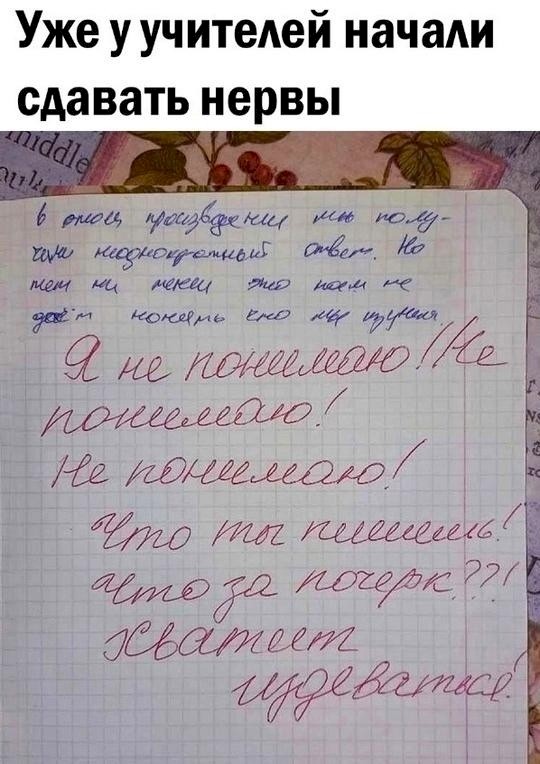 Уже у учителей начали
сдавать нервы
middle
В этом произведении мы полу-
чили неоднократный ответ. Но
тем ни менее это нам не
даёт понять кто мы изучили
Я не понимаю! Не
понимаю!
Не понимаю!
Что ты пишешь!
Что за почерк??!
Хватит
издеваться!